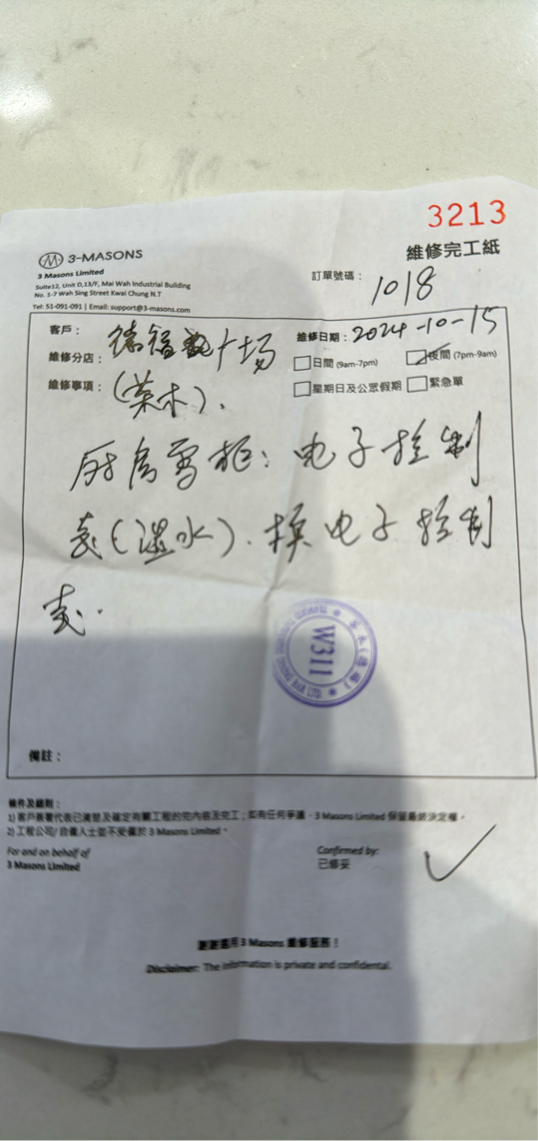 3213
3-MASONS
維修完工紙
3 Masons Limited
Suite12, Unit D,13/F, Mai Wah Industrial Building
No. 1-7 Wah Sing Street Kwai Chung N.T
Tel: 51-091-091 | Email: support@3-masons.com
訂單號碼： 1018
客戶： 德福 广场
維修日期： 2024-10-15
維修分店：
日間 (9am-7pm) 夜間 (7pm-9am)
維修事項： (茶木).
星期日及公眾假期 緊急單
厨房雪柜：电子控制
表(湿水). 换电子控制
表.
W311
備註：
條件及細則：
1) 客戶簽署代表已清楚及確定有關工程的完內容及完工；如有任何爭議，3 Masons Limited 保留最終決定權。
2) 工程公司/ 自僱人士並不受僱於 3 Masons Limited。
For and on behalf of
3 Masons Limited
Confirmed by:
已修妥
謝謝選用 3 Masons 維修服務！
Disclaimer: The information is private and confidential.